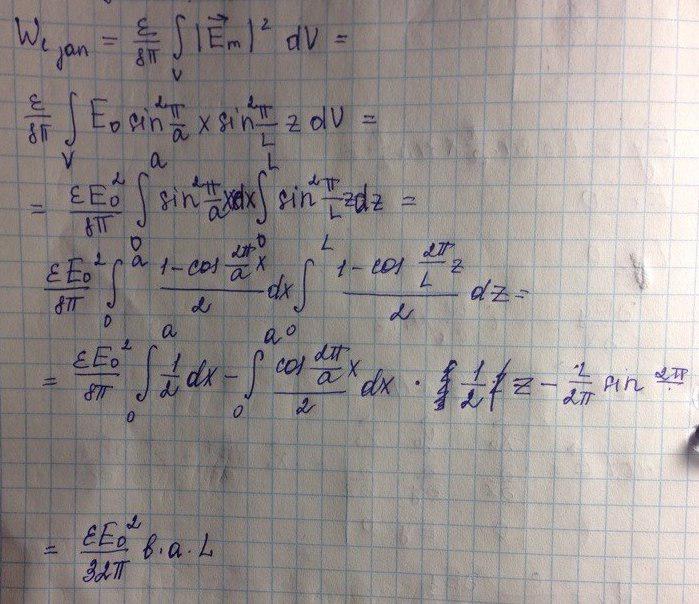 W_e зап = ε/8π ∫_V |E⃗_m|² dV =
ε/8π ∫_V E_0 sin² π/a x sin² π/L z dV =
= εE_0²/8π ∫_0^a sin² π/a x dx ∫_0^L sin² π/L z dz =
εE_0²/8π ∫_0^a (1-cos 2π/a x)/2 dx ∫_0^L (1-cos 2π/L z)/2 dz =
= εE_0²/8π ∫_0^a 1/2 dx - ∫_0^a (cos 2π/a x)/2 dx · 1/2 z - L/2π sin 2π
= εE_0²/32π b·a·L